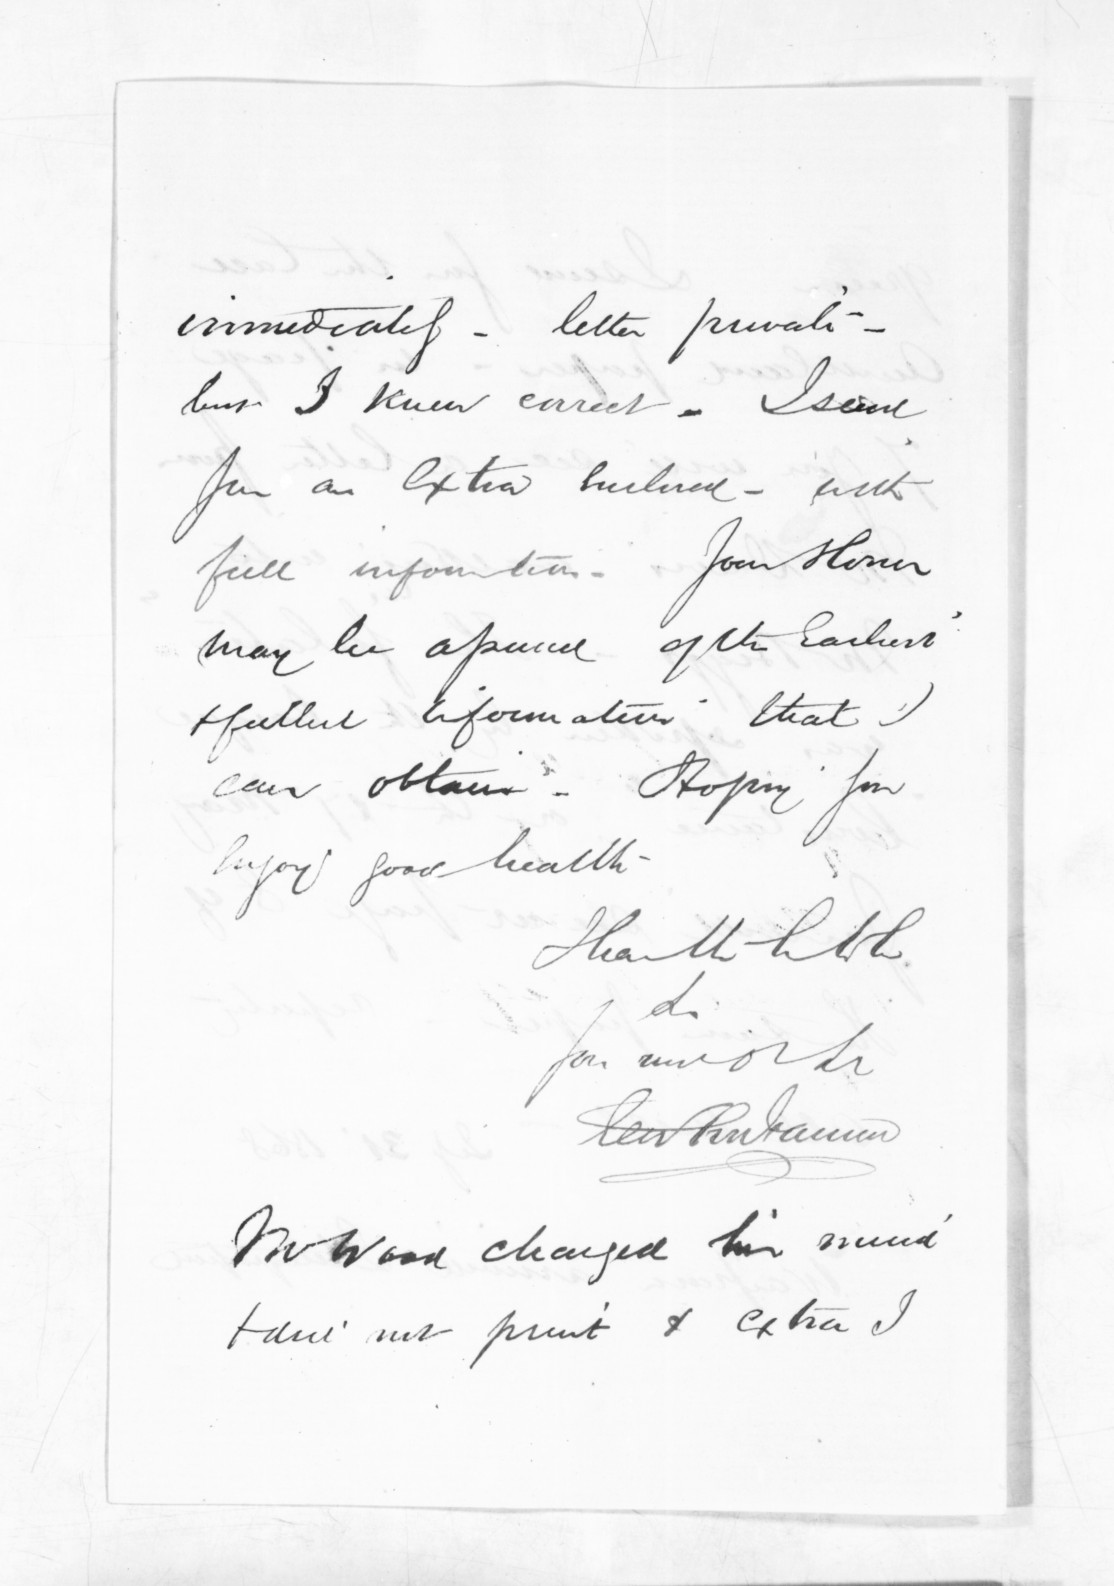 immediately - letter private -
but I knew correct - I send
for an Extra Enclosed - with
full information - Your Honor
may be assured of the Earliest
& fullest information that I
can obtain - Hoping you
enjoy good health -
I have the h to be
Sir
Your mo Ob Sr
Mr Wood changed his mind
& did not print & extra I